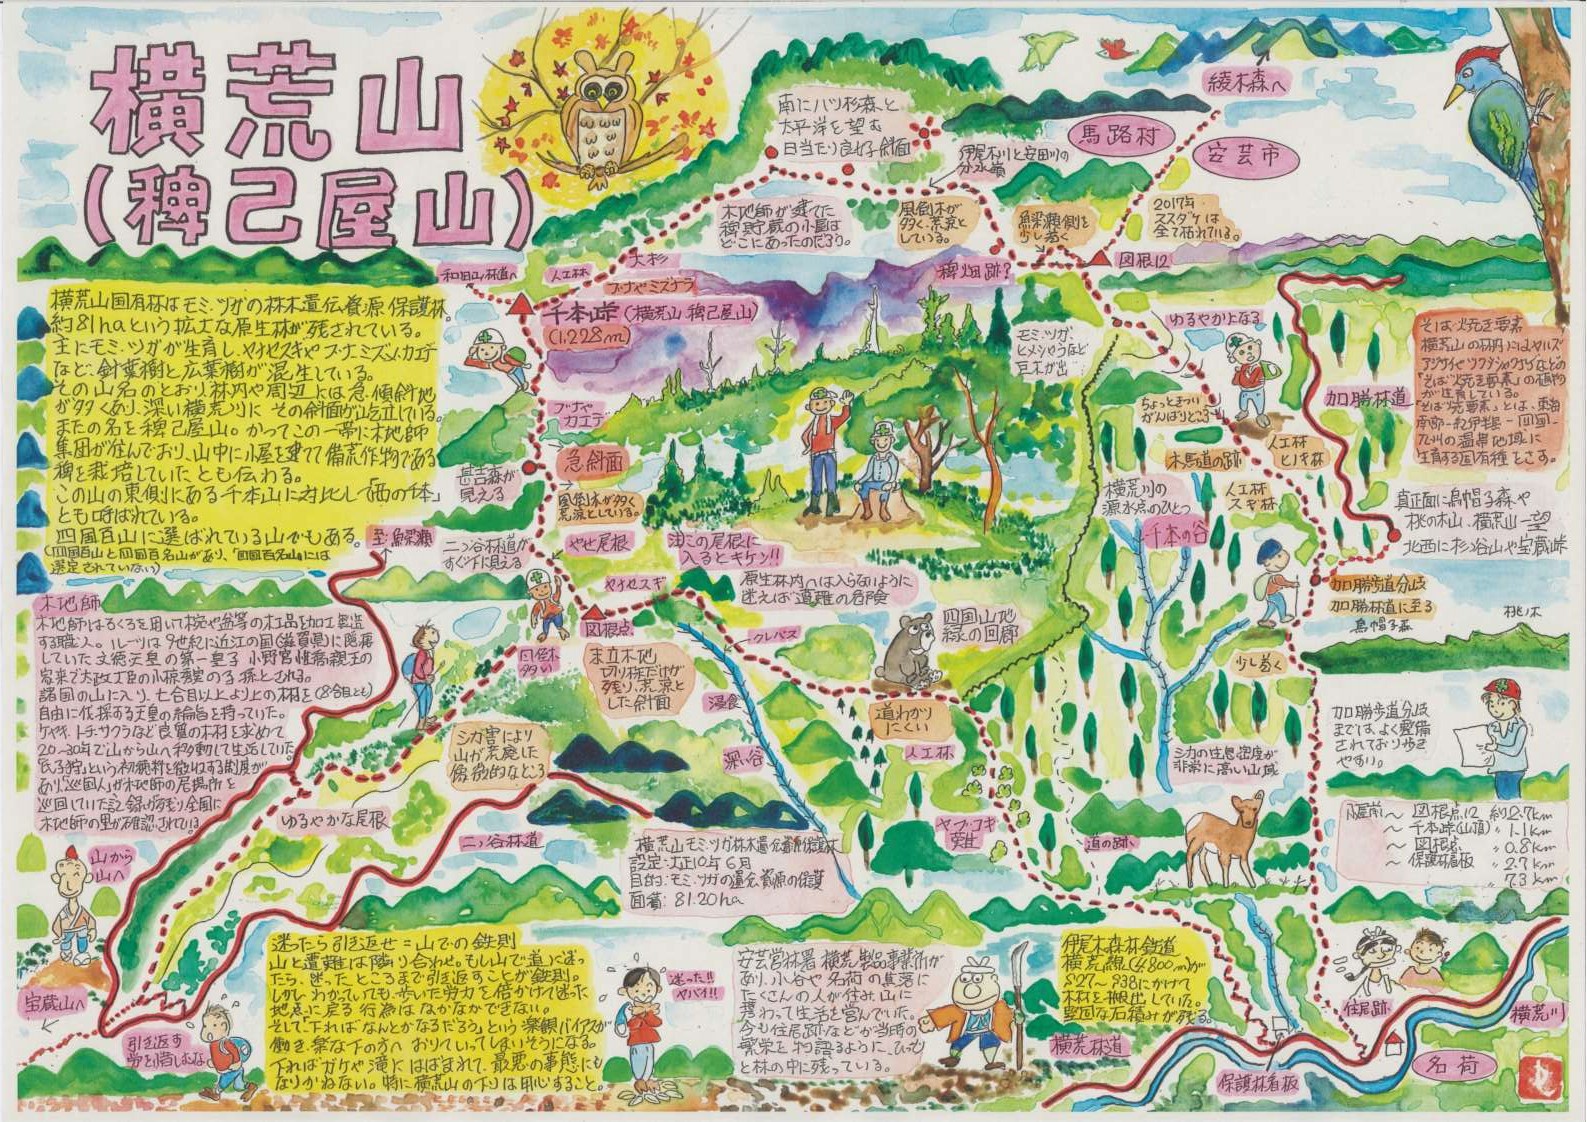 横荒山
(稗己屋山)
横荒山国有林はモミ、ツガの林木遺伝資源保護林。
約81haという拡大な原生林が残されている。
主にモミ・ツガが生育し、ヤナセスギやブナ、ミズメ、カエデ
など、針葉樹と広葉樹が混生している。
その山名のとおり、林内や周辺には急傾斜地
が多くあり、深い横荒川にその斜面が屹立している。
またの名を稗己屋山。かつてこの一帯に木地師
集団が住んでおり、山中に小屋を建て備荒作物である
稗を栽培していたとも伝わる。
この山の東側にある千本山に対比し「西の千本」
とも呼ばれている。
四国百山に選ばれている山でもある。
(四国百山と四国百名山があり、「四国百名山」には
選定されていない)
木地師
木地師はろくろを用いて椀や盆等の木工品を加工製造
する職人。ルーツは9世紀に近江の国(滋賀県)に隠棲
していた文徳天皇の第一皇子小野宮惟喬親王の
家来で太政大臣の小椋秀実の子孫とされる。
諸国の山に入り、七合目以上より上の木材を(8合目とも)
自由に伐採する天皇の綸旨を持っていた。
ケヤキ、トチ、サクラなど良質の木材を求めて
20〜30年で山から山へ移動して生活していた。
「氏子狩」という初穂料を徴収する制度が
あり「巡回人」が木地師の居場所を
巡回していた記録が残り全国に
木地師の里が確認されている
山から
山へ
宝蔵山へ
引き返す
労を惜しむな
和田山林道へ
人工林
大杉
ブナやミズナラ
千本峠(横荒山 稗己屋山)
(1,228m)
ブナや
カエデ
甚吉森が
見える
急斜面
風倒木が多く
荒涼としている。
至 魚梁瀬
二ッ谷林道が
すぐ下に見える
やせ尾根
ヤナセスギ
図根点
注この尾根に
入るとキケン!!
原生林内へは入らないように
迷えば遭難の危険
クレバス
四国山地
緑の回廊
風倒木
多い
未立木地
切り株だけが
残り、荒涼と
した斜面
シカ害により
山が荒廃した
象徴的なところ
浸食
深い谷
道わかり
にくい
人工林
ヤブコギ
道の跡
ゆるやかな尾根
二ッ谷林道
横荒山モミ・ツガ林木遺伝資源保護林
設定:大正10年6月
目的:モミ、ツガの遺伝資源の保護
面積:81.20ha
南に八ツ杉森と
太平洋を望む
日当たり良好斜面
伊尾木川と安田川の
分水嶺
木地師が建てた
稗貯蔵の小屋は
どこにあったのだろう。
風倒木が
多く荒涼と
している。
魚梁瀬側を
少し巻く
2017年
スズタケは
全て枯れている。
綾木森へ
馬路村
安芸市
稗畑跡?
図根12
モミ、ツガ、
ヒメシャラなど
巨木が出
ゆるやかになる
ちょっとまつい
がんばりどころ
人工林
ヒノキ林
木馬道の跡
人工林
スギ林
横荒川の
源水点のひとつ
千本の谷
加勝林道
そはやき要素
真正面に烏帽子森や
桃の木山、横荒山一望
北西に杉ヶ谷山や宝蔵峠
加勝歩道分岐
加勝林道に至る
烏帽子森
桃ノ木
少し巻く
シカの生息密度が
非常に高い山域
加勝歩道分岐
までは、よく整備
されておりやき
やすい。
〜図根点12 約2.7km
〜千本峠(山頂) 〃 1.1km
〜図根点 〃 0.8km
〜保護林看板 〃 2.7km
7.3km
迷ったら引き返せ=山での鉄則
山と遭難は隣り合わせ。もし山で道に迷っ
たら、迷ったところまで引き返すことが鉄則。
しかしわかっていても、歩いた労力を倍かけて迷った
地点に戻る行為はなかなかできない。
そして「下ればなんとかなるだろう」という楽観バイアスが
働き、楽な下の方へおりていってしまいそうになる。
下ればガケや滝にはばまれて、最悪の事態にも
なりかねない。特に横荒山の下りは用心すること。
迷った!!
ヤバイ!!
安芸営林署 横荒製品事業所が
あり、小谷や名荷の真落に
たくさんの人が住み、山に
携わって生活を営んでいた。
今も住居跡などが当時の
繁栄を物語るように、ひっそり
と林の中に残っている。
伊尾木森林鉄道
横荒線(4,800m)が
S27〜S38にかけて
木材を搬出していた。
堅固な石積みが残る。
横荒林道
保護林看板
住居跡
横荒川
名荷